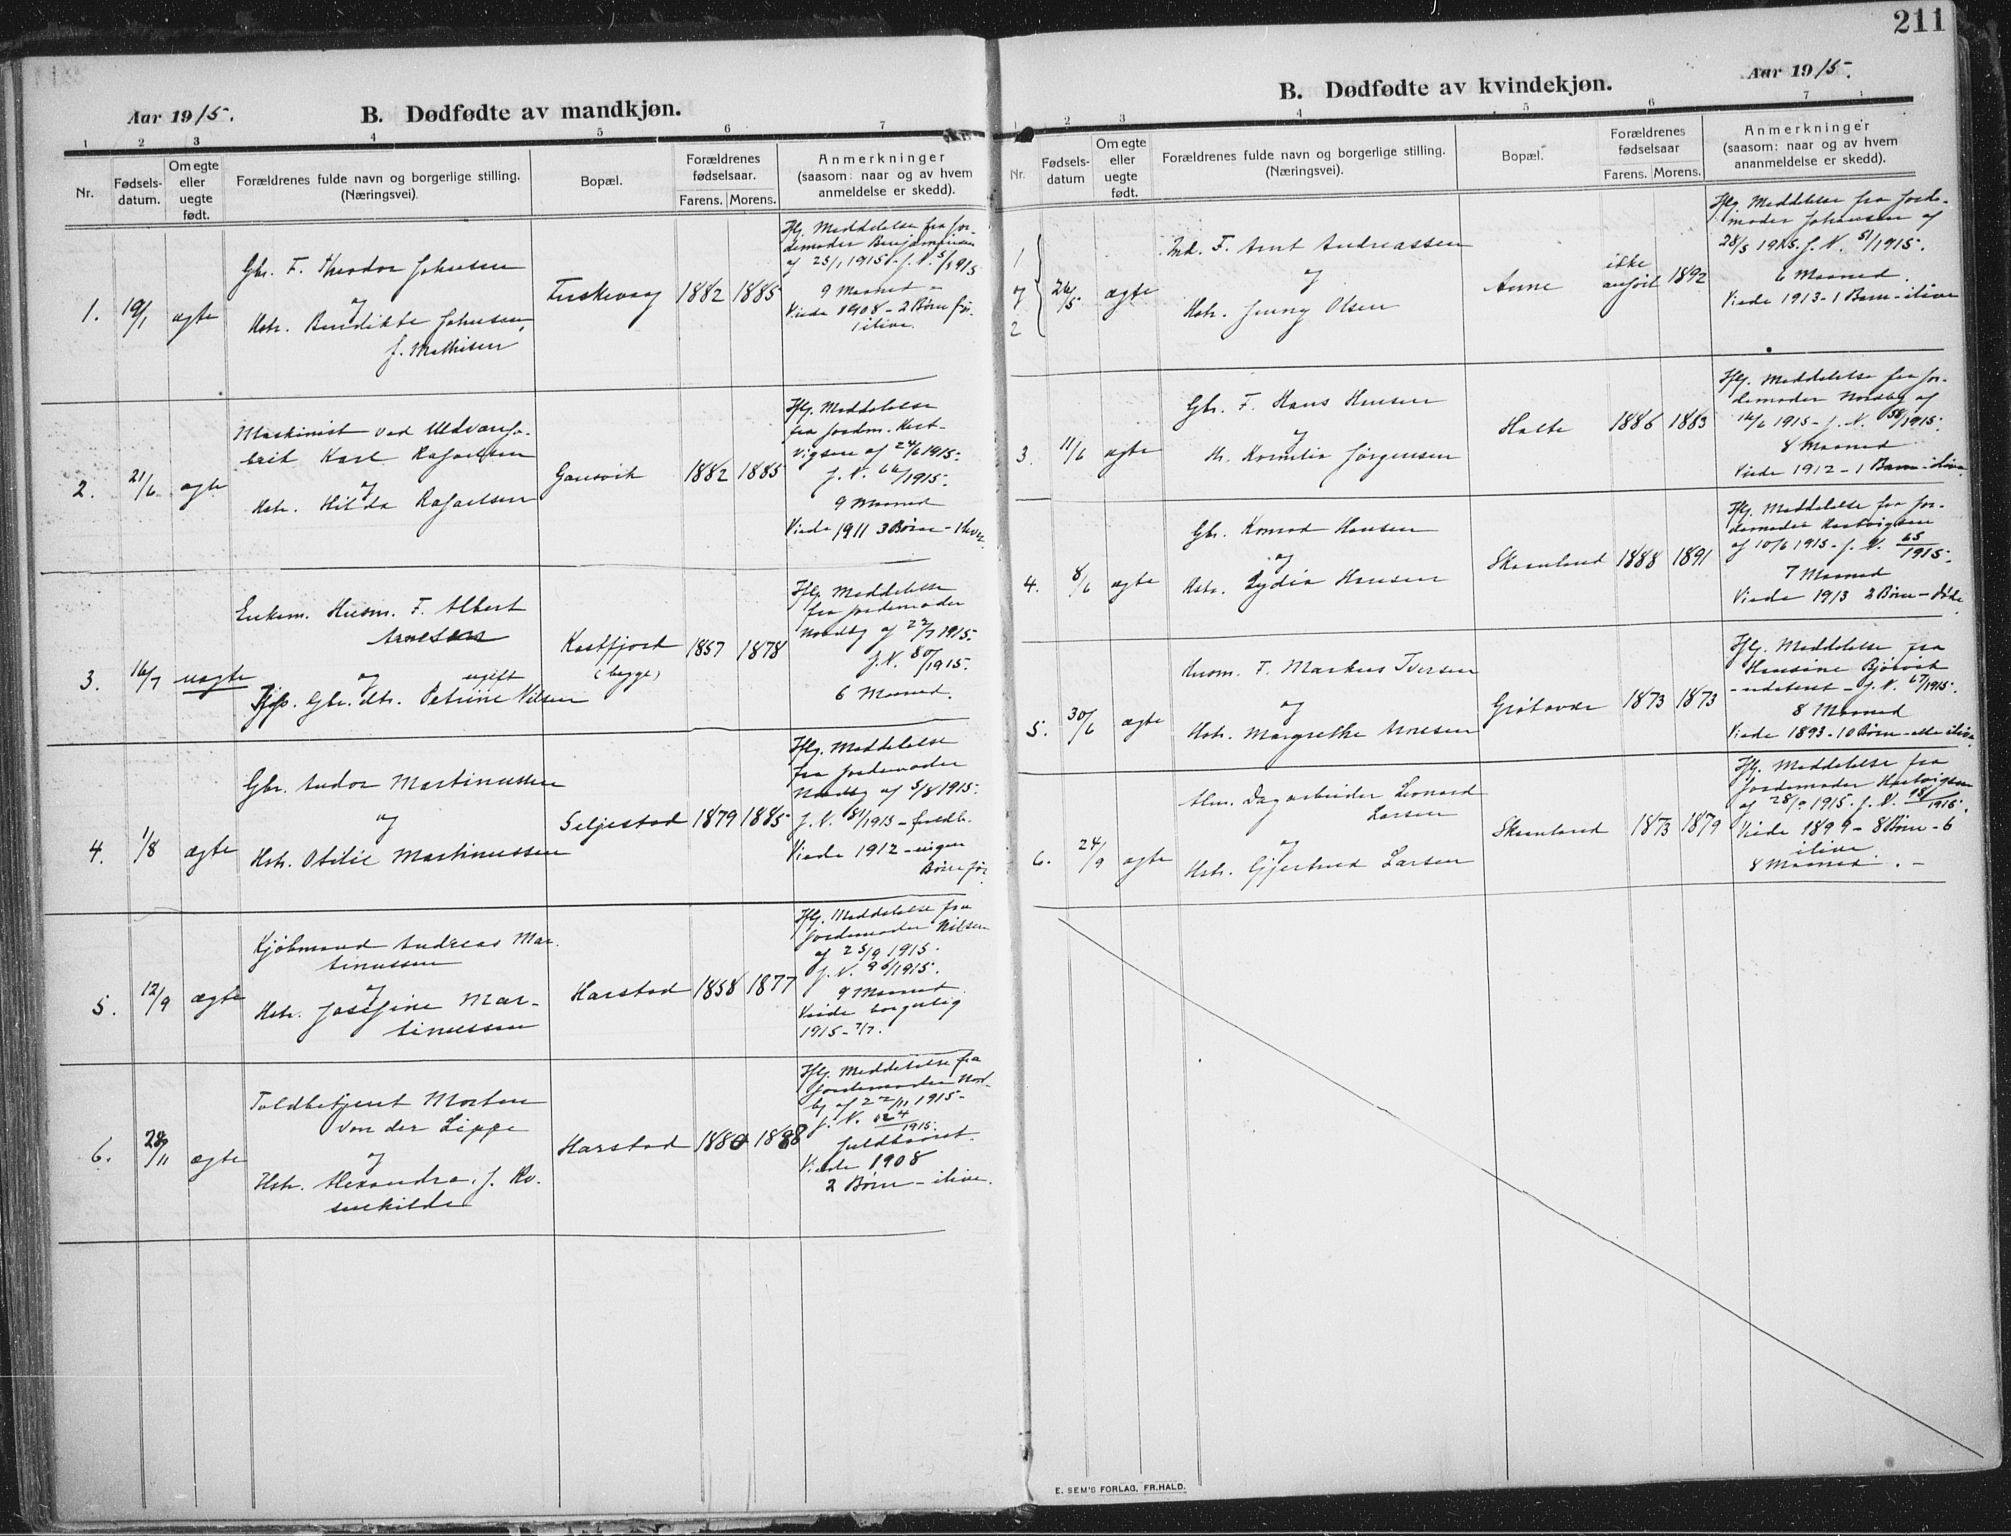 211
Aar 1915.
B. Dødfødte av mandkjøn.
1 2 3 4 5 6 7
Nr.
Fødsels-
datum.
Om egte
eller
uegte
født.
Forældrenes fulde navn og borgerlige stilling.
(Næringsvei).
Bopæl.
Forældrenes
fødselsaar.
Farens. Morens.
Anmerkninger
(saasom: naar og av hvem
anmeldelse er skedd).
1. 19/1 ægte
Gbr. F. Theodor Johnsen
og
Hstr. Bendikte Johnsen,
f. Mathisen
Fuskevaag 1882 1885
Iflg. Meddelelse fra Jor-
demoder Benjaminsen
af 25/1 1915 - J. N. 5/1915
9 Maaned -
Viede 1908 - 2 Børn før.
1 ilive.
2. 21/6 ægte
Maskinist ved Uldvarefa-
brik Karl Rafaelsen
og
Hstr. Hilda Rafaelsen
Gansvik 1882 1885
Iflg. Meddelelse
fra Jordm. Hart-
vigsen af 24/6 1915.
J. N. 66/1915.
9 Maaned
Viede 1911 3 Børn -
3. 16/7 uægte
Enkem. Husm. F. Albert
Arnesen
og ugift
Gbr. dtr. Petrine Nilsen
Kastfjord
(begge)
1857 1878
Iflg. Meddelelse
fra Jordemoder
Nordby af 22/7 1915.
J. N. 80/1915.
6 Maaned.
4. 1/8 ægte
Gbr. Andor Martinussen
og
Hstr. Otilie Martinussen
Seljestad 1879 1885
Iflg. Meddelelse
fra Jordemoder
Nordby af 5/8 1915.
J. N. 81/1915 - fuldb.
Viede 1912 - ingen
Børn før.
5. 12/9 ægte
Kjøbmand Andreas Mar-
tinussen
og
Hstr. Josefine Mar-
tinussen
Harstad 1858 1877
Iflg. Meddelelse fra
Jordemoder Nilsen
af 25/9 1915.
J. N. 96/1915.
9 Maaned.
Viede borgerlig
1915 - 7/7.
6. 28/11 ægte
Toldbetjent Morten
von der Lippe
og
Hstr. Alexandra, f. Ro-
senkilde
Harstad 1880 1888
Iflg. Meddelelse fra
Jordemoder Nord-
by af 22/11 1915 -
J. N. 124/1915.
fuldbaaret.
Viede 1908
2 Børn - ilive.
Aar 1915.
B. Dødfødte av kvindekjøn.
1 2 3 4 5 6 7
Nr.
Fødsels-
datum
Om egte
eller
uegte
født.
Forældrenes fulde navn og borgerlige stilling.
(Næringsvei).
Bopæl.
Forældrenes
fødselsaar
Farens. Morens.
Anmerkninger
(saasom: naar og av hvem
ananmeldelse er skedd).
1
og
2
26/5 ægte
Ind. F. Arnt Andreassen
og
Hstr. Jenny Olsen
Aune
ikke
anført
1892
Iflg. Meddelelse fra Jorde-
moder Johansen af
28/5 1915. J. N. 51/1915.
6 Maaned.
Viede 1913 - 1 Barn - ilive
3. 11/6 ægte
Gbr. F. Hans Hansen
og
H. Kornelia Jørgensen
Halte 1886 1883
Iflg. Meddelelse fra Jor-
demoder Nordby af
14/6 1915 - J. N. 58/1915.
8 Maaned
Viede 1912 - 1 Barn - ilive
4. 8/6 ægte
Gbr. Konrad Hansen
og
Hstr. Lydia Hansen
Skarnland 1888 1891
Iflg. Meddelelse fra Jor-
demoder Hartvigsen
af 10/6 1915 - J. N. 65/1915.
7 Maaned
Viede 1913 2 Børn - døde.
5. 30/6 ægte
Husm. F. Markus Iversen
og
Hstr. Margrethe Arnesen
Grøtavær 1873 1873
Iflg. Meddelelse fra
Hansine Bjørvik
- udateret - J. N. 67/1915.
8 Maaned
Viede 1893 - 10 Børn - alle ilive.
6. 24/9 ægte
Alm. Dagarbeider Leonard
Larsen
og
Hstr. Gjertrud Larsen
Skarnland 1873 1879
Iflg. Meddelelse fra
Jordemoder Hartvigsen
af 28/9 1915. J. N. 98/1915.
Viede 1899 - 8 Børn - 6
ilive
8 Maaned. -
E. SEM'S FORLAG, FR.HALD.